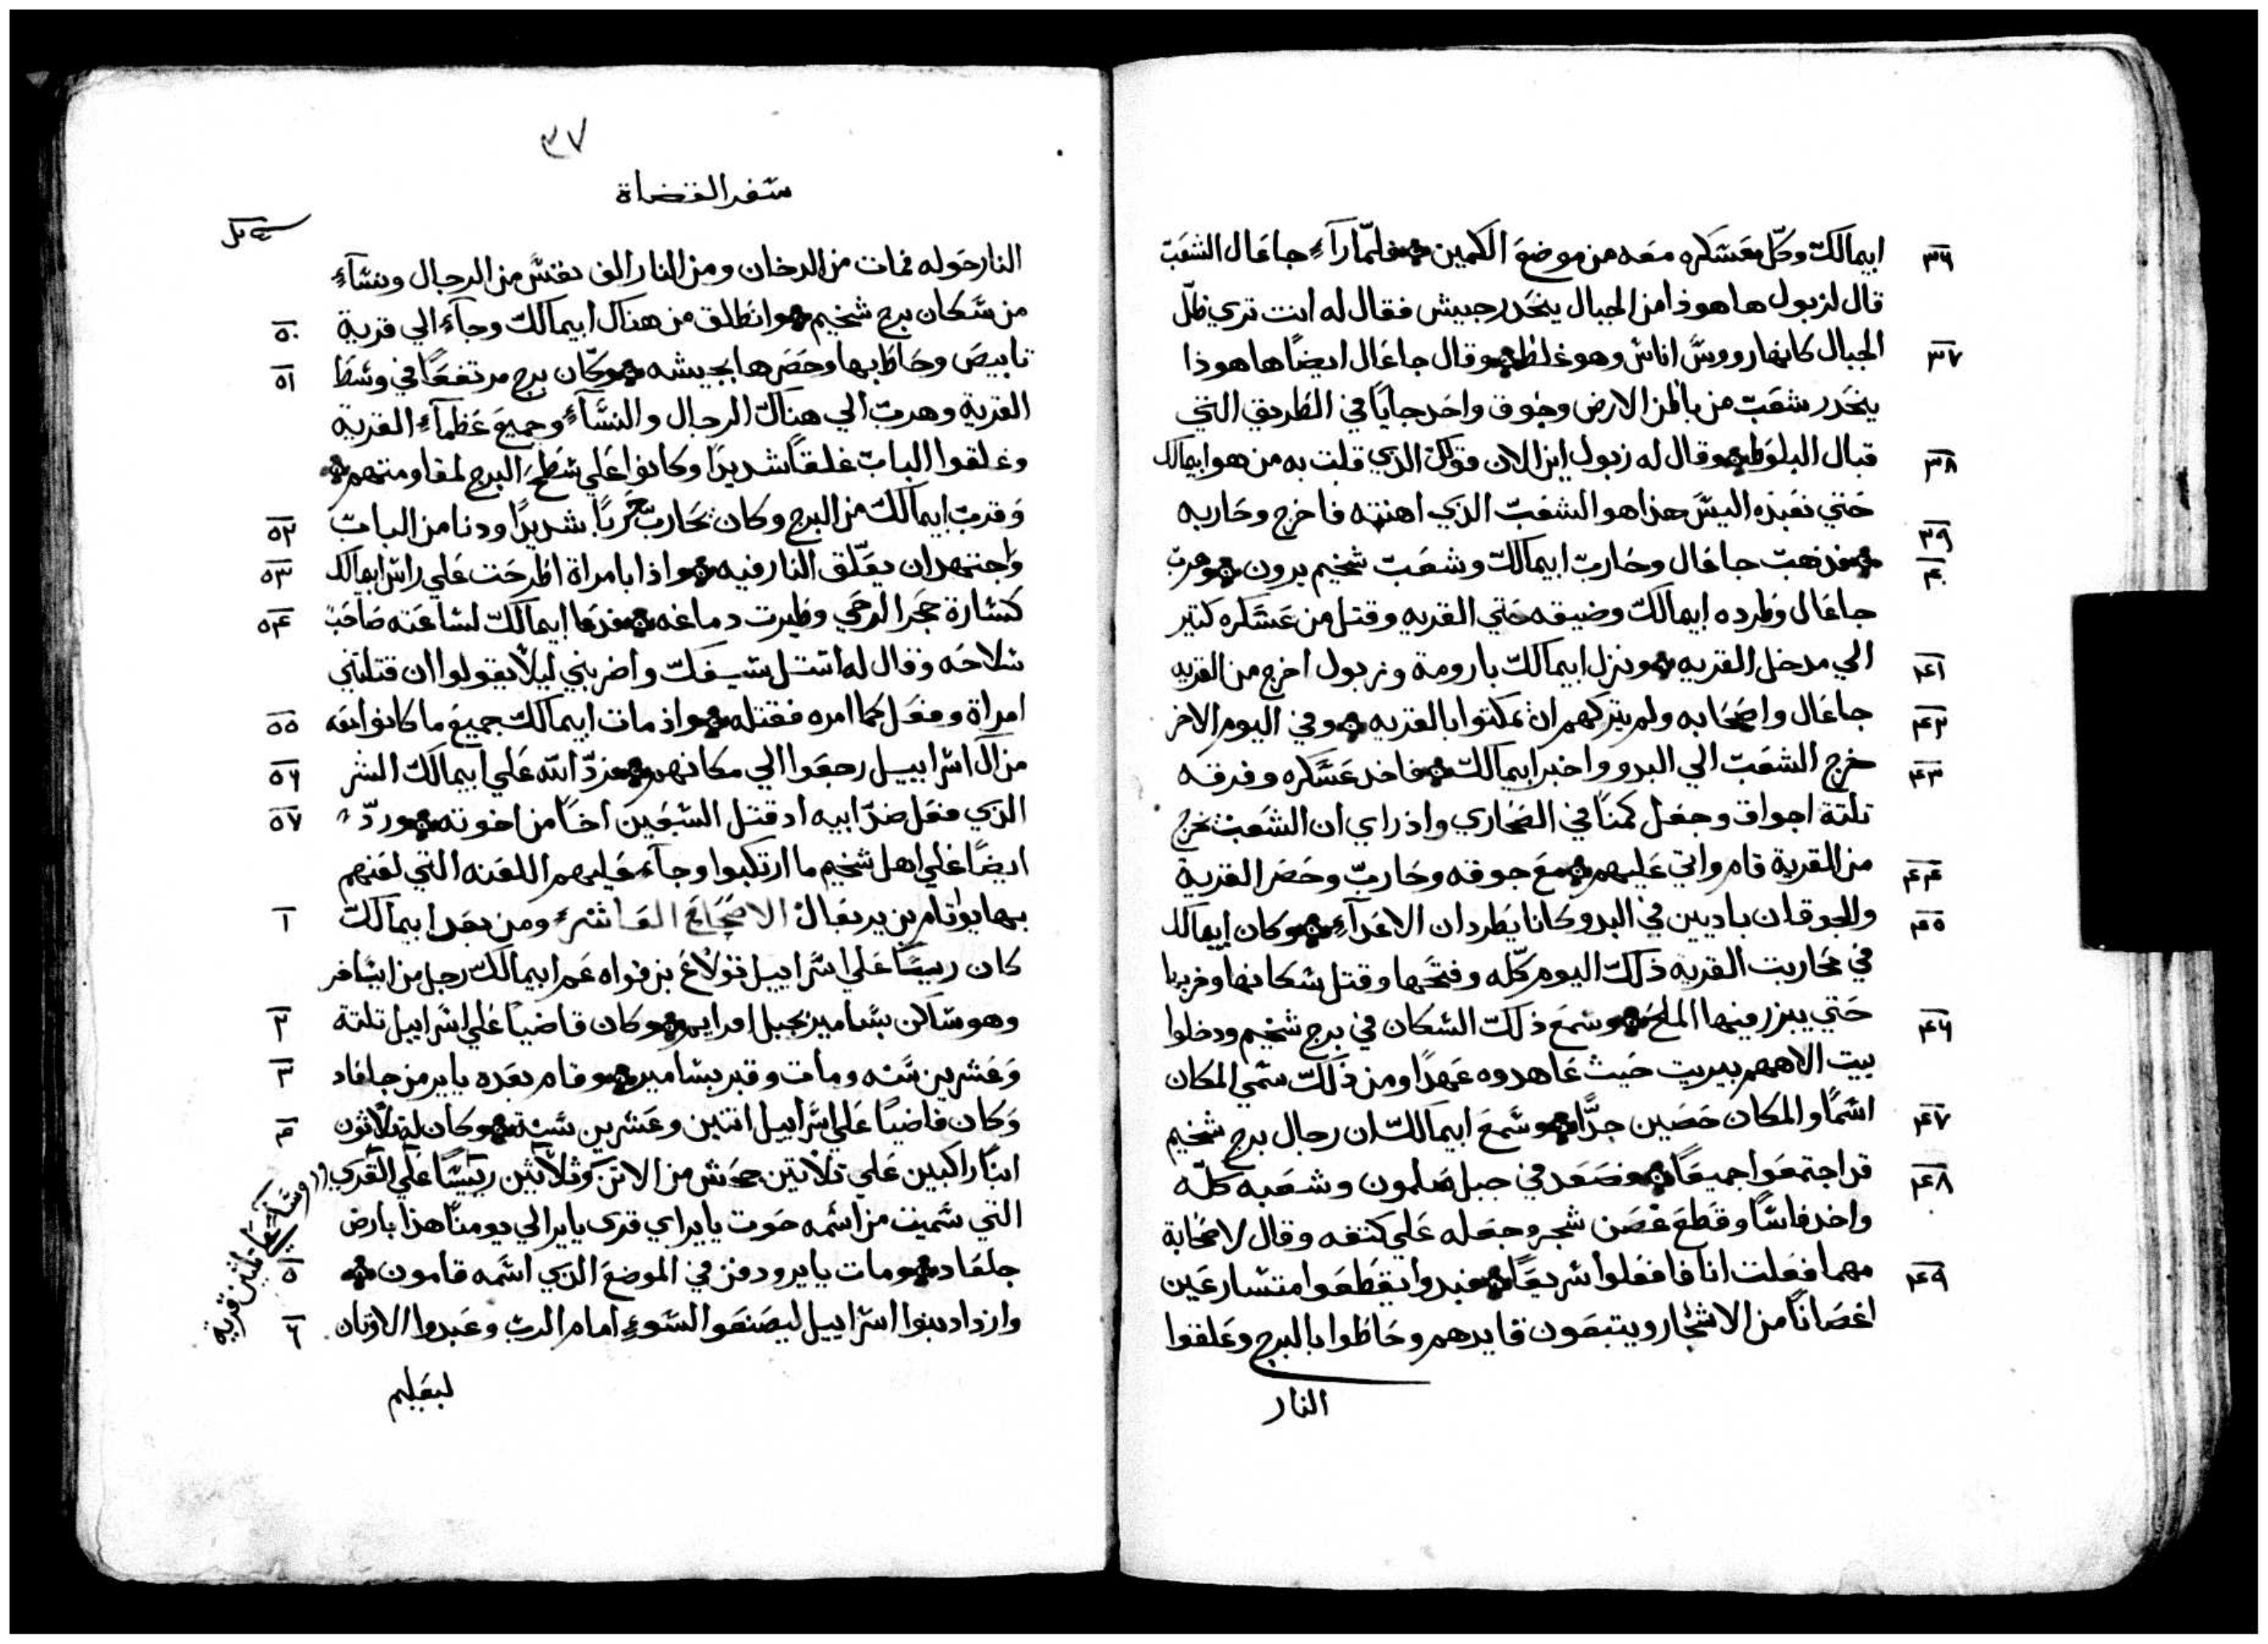 ابيمالك وكل معسكره معه من موضع الكمين فلما رآء جاعال الشعب ٣٦
قال لزبول ها هوذا من الجبال ينحدر جيش فقال له انت تري ظل
الجبال كانها رووس اناس وهو غلط وقال جاعال ايضًا ها هوذا ٣٧
ينحدر شعب من باطن الارض وجوق واحد جايًا في الطريق التي
قبال البلوط وقال له زبول اين الان قولك الذي قلت به من هو ابيمالك ٣٨
حتي نعبده اليس هذا هو الشعب الذي اهنته فاخرج وحاربه
فذهب جاعال وحارب ابيمالك وشعب شخيم يرون وهرب ٣٩ ٤٠
جاعال وطرده ابيمالك وضيقه حتي القريه وقتل من عسكره كتير
الي مدخل القريه ونزل ابيمالك بارومة وزبول اخرج من القريه ٤١
جاعال واصحابه ولم يتركهم ان يمكتوا بالقريه وفي اليوم الاخر ٤٢
خرج الشعب الي البدو واخبر ابيمالك فاخد عسكره وفرقه ٤٣
تلتة اجواق وجعل كمنًا في الصحاري واذ راي ان الشعب يخرج
من القرية قام واتي عليهم مع جوقه وحارب وحصر القرية ٤٤
والجوقان باديين في البدو كانا يطردان الاعدآء وكان ابيمالك ٤٥
في محاربت القريه ذلك اليوم كله وفتحها وقتل سكانها وخربها
حتي يبزر فيها الملح وسمع ذلك السكان في برج شخيم ودخلوا ٤٦
بيت الاههم بيريت حيث عاهدوه عهدًا ومن ذلك سمي المكان
اسمًا والمكان حصين جدًّا وسمع ابيمالك ان رجال برج شخيم ٤٧
قد اجتمعوا جميعًا فصعد في جبل صلمون وشعبه كله ٤٨
واخد فاسًا وقطع غصن شجر وجعله علي كتفه وقال لاصحابة
مهما فعلت انا فافعلوا سريعًا فبدوا يقطعوا متسارعين ٤٩
اغصانًا من الاشجار ويتبعون قايدهم وحاطوا بالبرج وعلقوا
النار
٣٧
سفر القضاة
النار حوله فمات من الدخان ومن النار الف نفس من الرجال ونسآء
من سكان برج شخيم وانطلق من هناك ابيمالك وجآء الي قرية ٥٠
تابيص وحاط بها وحصرها بجيشه وكان برج مرتفعًا في وسط ٥١
القرية وهرب الي هناك الرجال والنسآء وجميع عظمآء القرية
وغلقوا الباب غلقًا شديدًا وكانوا علي سطح البرج لمقاومتهم
وقرب ابيمالك من البرج وكان يحارب حربًا شديدًا ودنا من الباب ٥٢
واجتهد ان يعلق النار فيه واذا بامراة اطرحت علي راس ابيمالك ٥٣
كسارة حجر الرحي وطيرت دماغه فدعا ابيمالك لساعته صاحب ٥٤
سلاحه وقال له استل سيفك واضربني ليلا يقولوا ان قتلتني
امراة وفعل كما امره فقتله واذ مات ابيمالك جميع ما كانوا معه ٥٥
من آل اسراييل رجعوا الي مكانهم فرد الله علي ابيمالك الشر ٥٦
الذي فعل ضد ابيه اد قتل السبعين اخًا من اخوته ورد ٥٧
ايضًا علي اهل شخيم ما ارتكبوا وجآء عليهم اللعنه التي لعنهم
بها يواتام بن يربعال الاصحاح العاشر ومن بعد ابيمالك ١
كان رييسًا علي اسراييل تولاع بن فواه عم ابيمالك رجل من ايساخر
وهو ساكن بسامير بجبل افرايم وكان قاضيًا علي اسراييل تلتة ٢
وعشرين سنه ومات وقبر بسامير وقام بعده يايير من جلعاد ٣
وكان قاضيًا علي اسراييل اتنين وعشرين سنة وكان له ثلاثون ٤
ابنًا راكبين علي تلاتين جحش من الاتن وثلاثين رييسًا علي القري
التي سميت من اسمه حوت يايير اي قري يايير الي يومنا هذا بارض
جلعاد ومات يايير ودفن في الموضع الذي اسمه قامون ٥
وازداد بنوا اسراييل ليصنعوا السوء امام الرب وعبدوا الاوتان ٦
لبعليم